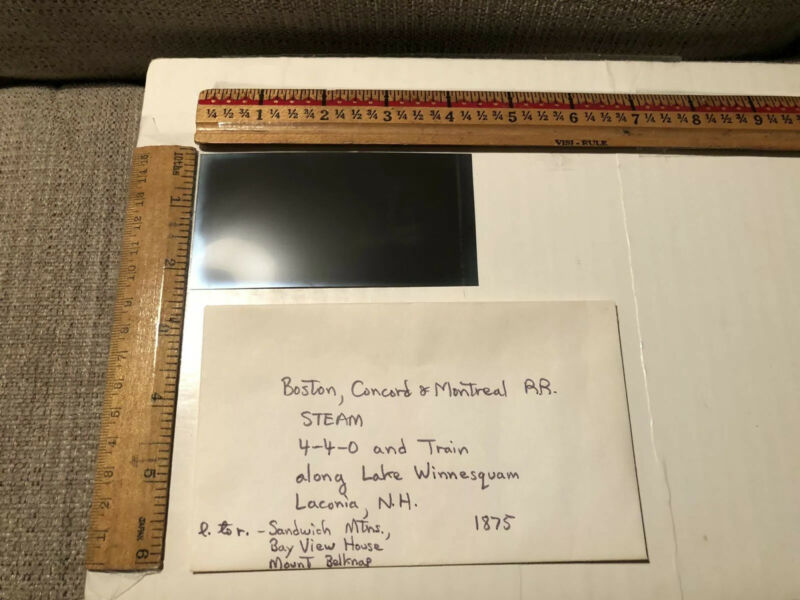 ¼ ½ ¾ 1 ¼ ½ ¾ 2 ¼ ½ ¾ 3 ¼ ½ ¾ 4 ¼ ½ ¾ 5 ¼ ½ ¾ 6 ¼ ½ ¾ 7 ¼ ½ ¾ 8 ¼ ½ ¾ 9 ¼ ½
VISI-RULE
10ths
1
2
4
5
6
JAPAN
Boston, Concord & Montreal R.R.
STEAM
4-4-0 and Train
along Lake Winnesquam
Laconia, N.H.
l. to r. - Sandwich Mtns., 1875
Bay View House
Mount Belknap